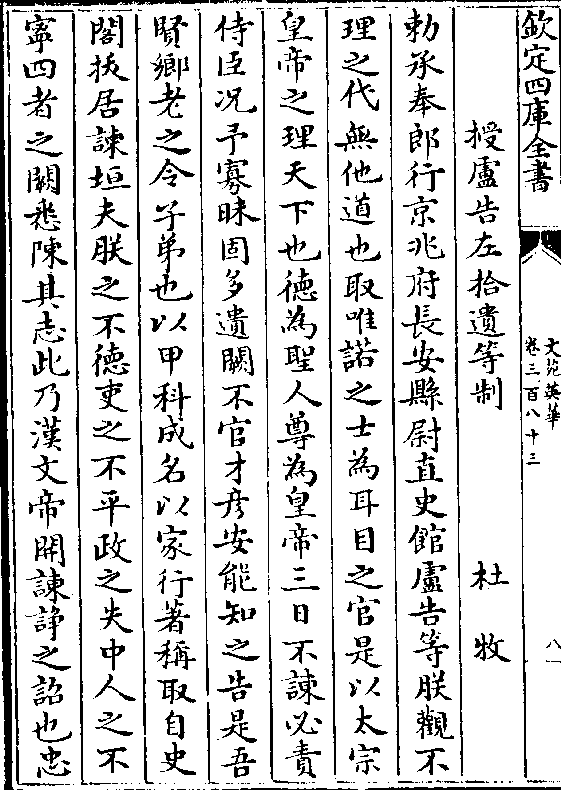 欽定四庫全書
文苑英華
卷三百八十三
八
授盧告左拾遺等制
杜牧
勅承奉郎行京兆府長安縣尉直史館盧告等朕觀不
理之代無他道也取唯諾之士為耳目之官是以太宗
皇帝之理天下也德為聖人尊為皇帝三日不諫必責
侍臣况予寡昧固多遺闕不官才彦安能知之告是吾
賢鄉老之令子弟也以甲科成名以家行著稱取自史
閣挍居諫垣夫朕之不德吏之不平政之失中人之不
寧四者之闕悉陳其志此乃漢文帝開諫諍之詔也忠